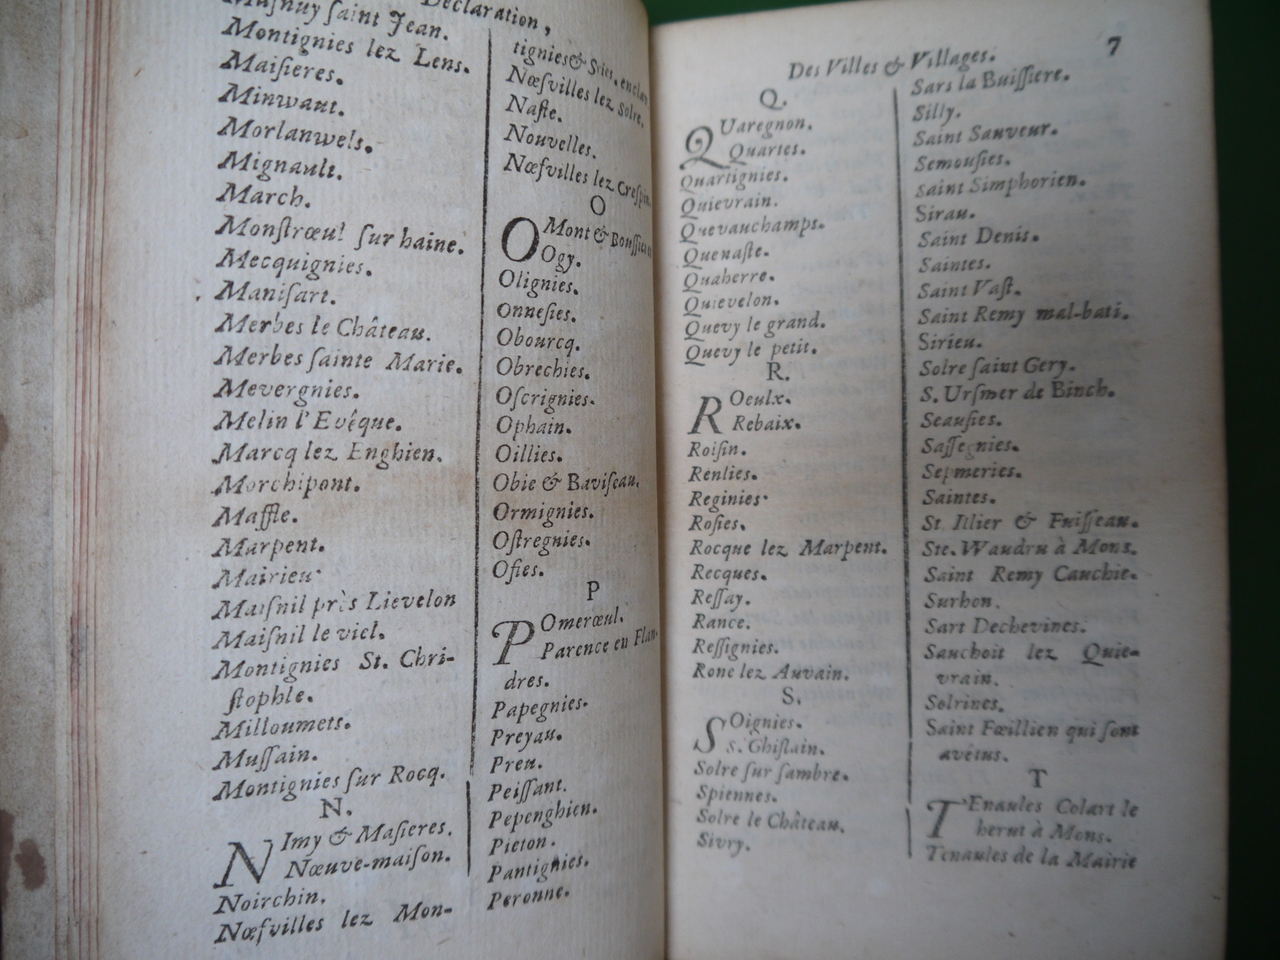 Declaration,
Masnuy ſaint Jean.
Montignies lez Lens.
Maiſieres.
Minwaut.
Morlanwels.
Mignault.
March.
Monſtrœul ſur haine.
Mecquignies.
Maniſart.
Merbes le Château.
Merbes ſainte Marie.
Mevergnies.
Melin l'Evêque.
Marcq lez Enghien.
Morchipont.
Maffle.
Marpent.
Mairieu
Maiſnil près Lievelon
Maiſnil le viel.
Montignies St. Chri-
ſtophle.
Milloumets.
Muſſain.
Montignies ſur Rocq.
N.
NImy & Maſieres.
Nœuve-maiſon.
Noirchin.
Nœfvilles lez Mon-
tignies &
Nœſvilles lez Solre.
Naſte.
Nouvelles.
Nœfvilles lez Creſpin.
O
OMont &
Ogy.
Olignies.
Onneſies.
Obourcq.
Obrechies.
Oſcrignies.
Ophain.
Oillies.
Obie & Baviſeau.
Ormignies.
Oſtregnies.
Oſies.
P
POmerœul.
Parence en Flan-
dres.
Papegnies.
Preyau.
Preu.
Peiſſant.
Pepenghien.
Pieton.
Pantignies.
Peronne.
Des Villes & Villages. 7
Q.
QUaregnon.
Quartes.
Quartignies.
Quievrain.
Quevauchamps.
Quenaſte.
Quaherre.
Quievelon.
Quevy le grand.
Quevy le petit.
R.
ROeulx.
Rebaix.
Roiſin.
Renlies.
Reginies
Roſies.
Rocque lez Marpent.
Recques.
Reſſay.
Rance.
Reſſignies.
Rone lez Auvain.
S.
SOignies.
S. Ghiſlain.
Solre ſur ſambre.
Spiennes.
Solre le Château.
Sivry.
Sars la Buiſſiere.
Silly.
Saint Sauveur.
Semouſies.
Saint Simphorien.
Sirau.
Saint Denis.
Saintes.
Saint Vaſt.
Saint Remy mal-bati.
Sirieu.
Solre ſaint Gery.
S. Urſmer de Binch.
Seauſies.
Saſſegnies.
Sepmeries.
Saintes.
St Illier & Fuiſſeau.
Ste. Waudru à Mons.
Saint Remy Cauchie.
Surhon.
Sart Dechevines.
Sauchoit lez Quie-
vrain.
Solrines.
Saint Fœillien qui ſont
avêtus.
T
TEnaules Colart le
herut à Mons.
Tenaules de la Mairie